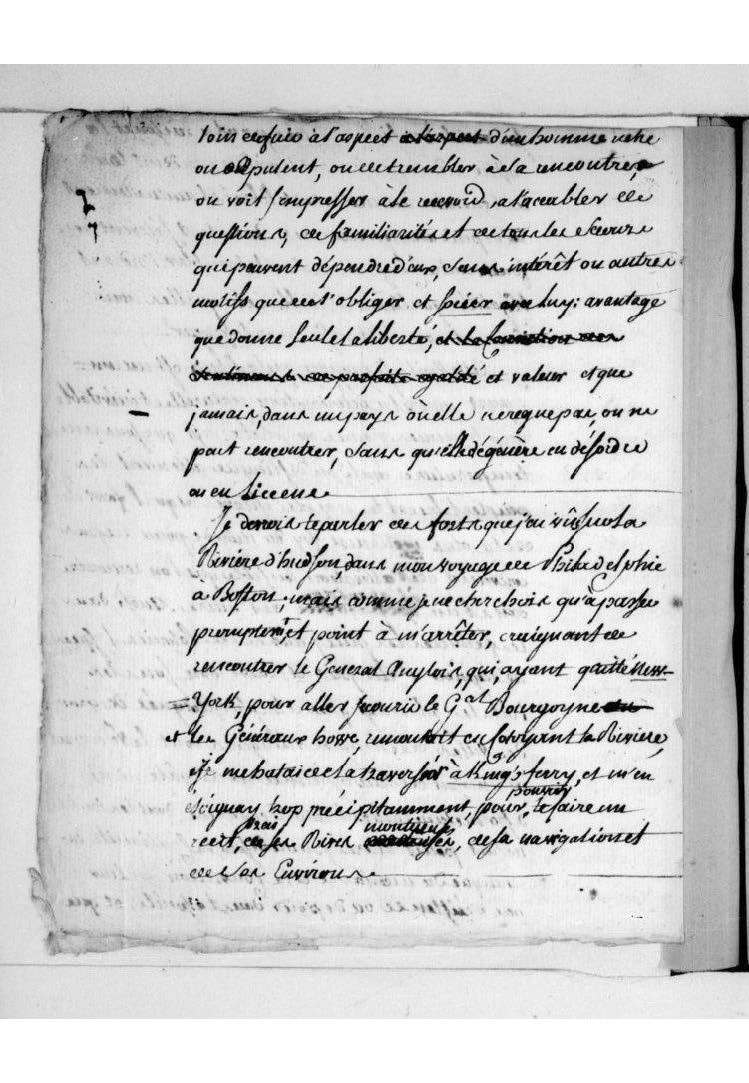 loin de fuir à l'aspect a l'aspect d'un homme riche
ou opulent, ou de trembler à sa rencontre,
on voit s'empresser à le recevoir, a l'accabler de
questions, de familiarités et de tous les secours
qui peuvent dépendre d'eux, sans intérêt ou autres
motifs que de l'obliger et avec luy: avantage
que donne seule la liberté, et la
sentimens de parfaite egalité et valeur et que
jamais, dans un pays où elle ne regne pas, on ne
peut rencontrer, sans qu'elle dégénère en désordre
ou en licence
Je devrois te parler des forts que j'ai vûs sur la
Rivière d'hudson, dans mon voyage de Philadelphie
à Boston; mais comme je ne cherchois qu'à passer
promptemt, et point à m'arrêter, craignant de
rencontrer le Général Anglois, qui, ayant quitté New-
York, pour aller secourir le Gal Bourgoyne
et les Généraux howe, remontoit en cotoyant la Rivière,
je me hatai de la traverser à King's ferry, et m'en
pouvoir
eloignay trop précipitamment, pour te faire un
vrai montueuses
recit, de ses Rives, de sa navigation et
de ses Environs